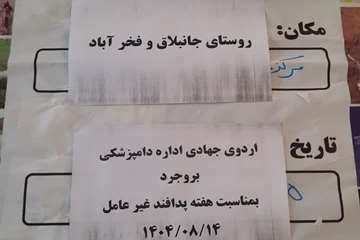 مکان:
روستای جانبلاق و فخر آباد
مرکز
تاریخ
اردوی جهادی اداره دامپزشکی
بروجرد
بمناسبت هفته پدافند غیر عامل
۱۴۰۴/۰۸/۱۴